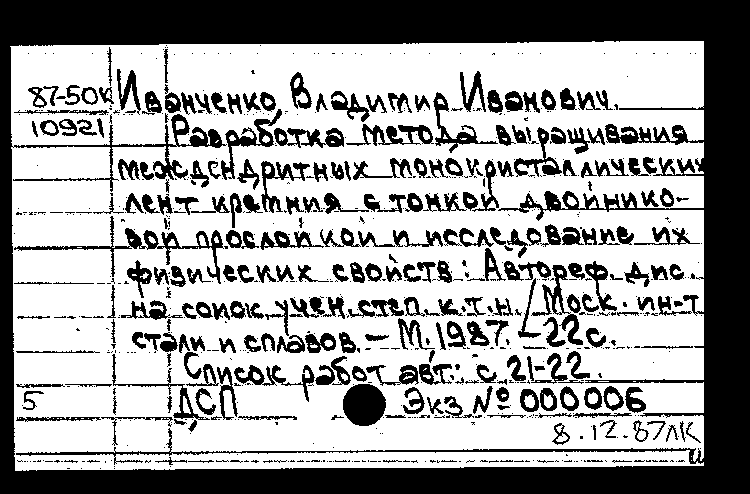 87-50К Иванченко, Владимир Иванович.
10921 Разработка метода выращивания
междендритных монокристаллических
лент кремния с тонкой двойнико-
вой прослойкой и исследование их
физических свойств: Автореф. дис.
на соиск. учен. степ. к.т.н. / Моск. ин-т
стали и сплавов. – М. 1987. – 22 с.
Список работ авт.: с 21-22.
5 ДСП Экз № 000006
8.12.87ЛК